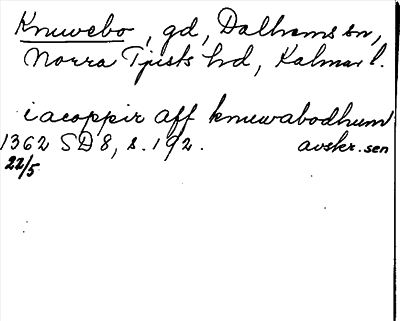 Knuvebo, gd, Dalhems sn,
Norra Tjusts hd, Kalmar l.
iacoppir aff knuwabodhum
1362 SD 8, s. 192. avskr. sen
22/5